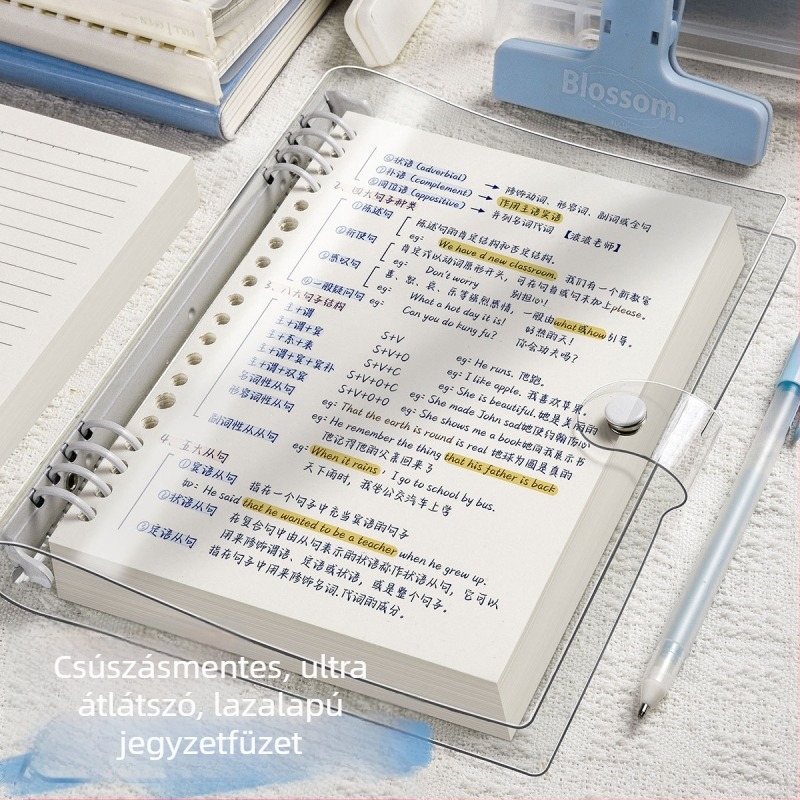 Blossom.
⑥状语 (adverbial)
⑦补语 (complement) → 修饰动词、形容词、副词或全句
⑧同位语 (appositive) → 作用主语宾语
→ 并列名词代词 【波波老师】
2、四大句子种类
①陈述句 陈述句的肯定结构和否定结构.
eg: We have d new classroom. 我们有一个新教室
②祈使句 肯定式以动词原形开头, 可在句首或句末加上please.
eg: Don't worry 别担心!
③感叹句 喜、怒、哀、乐等强烈感情, 一般由what或how引导。
eg: What a hot day it is! 好热的天!
④一般疑问句 eg: Can you do kung fu? 你会功夫吗?
3、八大句子结构
主+谓 S+V eg: He runs. 他跑.
主+谓+宾 S+V+O eg: I like apple. 我喜欢苹果.
主+系+表 S+V+C eg: She is beautiful. 她是美丽的
主+谓+宾+宾补 S+V+O+C eg: She made John sad 她使约翰伤心
主+谓+双宾 S+V+O+O eg: She shows me a book 她向我展示书
名词性从句 eg: That the earth is round is real 地球为圆是真的
形容词性从句 eg: He remember the thing that his father is back
他记得他的父亲回来了
副词性从从句 eg: When it rains, I go to school by bus.
天下雨时, 我坐公交汽车上学
4、五大从句
①宾语从句 指在一个句子中充当宾语的句子
如: He said that he wanted to be a teacher when he grew up.
②状语从句 在复合句中由从句表示的状语称作状语从句, 它可以
用来修饰谓语、定语或状语, 或是整个句子.
③定语从句 指在句子中用来修饰名词.代词的成分.
Csúszásmentes, ultra
átlátszó, lazalapú
jegyzetfüzet